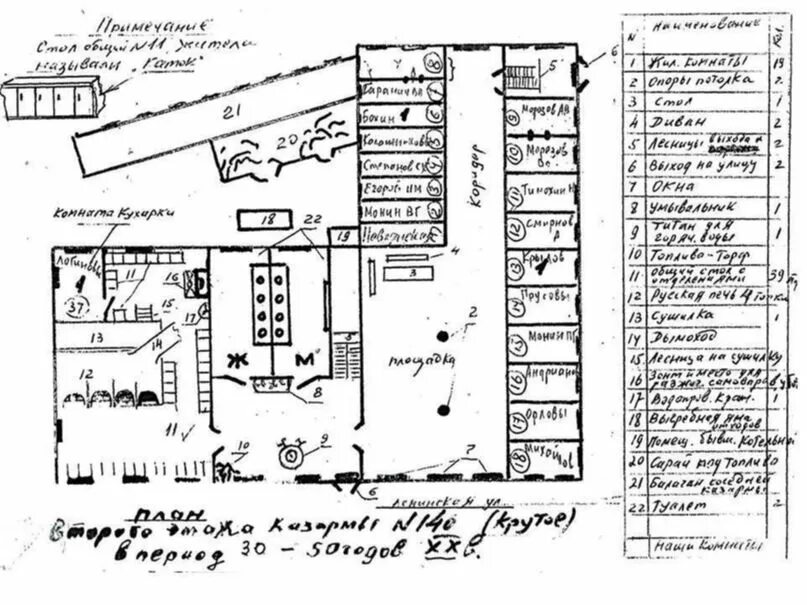 Примечание
Стол общий N11, жители
называли "Каток"
21
20
Комната Кухарки
18
22
19
11
16
37
15
17
13
14
12
11
Ж
М
5
8
10
9
6
7
8
7
6
Бокин 1
5
4
Степановс
3
Егоров ИМ
2
Монин ВГ
1
Коридор
4
3
2
площадка
7
5
6
9
Морозов АВ
10
Морозов
11
Тимохин Н
12
Смирнов
13
Крылов 1
14
Прусовы
15
Монин ПГ
16
Андриано
17
Орловы
18
Ленинская ул.
План
Второго этажа Казармы N140 (Крутое)
в период 30 – 50 годов XX в.
N Наименование Кол.
1 Жил. комнаты 19
2 Опоры потолка 2
3 Стол 1
4 Диван 2
5 Лесницы выхода 2
6 Выход на улицу 2
7 Окна
8 Умывальник 1
9 Титан для
горяч. воды 1
10 Топливо-Торф
11 Общий сток с
отделениями 39
12 Русская печь 4 топки
13 Сушилка 1
14 Дымоход
15 Лесница на сушилку
16 Зонт и место для
разжиг. самоваров
17 Водопров. Кран. 1
18 Выгребная яма
отходов
19 Помещ. бывш. Котельной
20 Сарай под Топливо
21 Балаган соседней
казармы
22 Туалет 2
Наши Комнаты